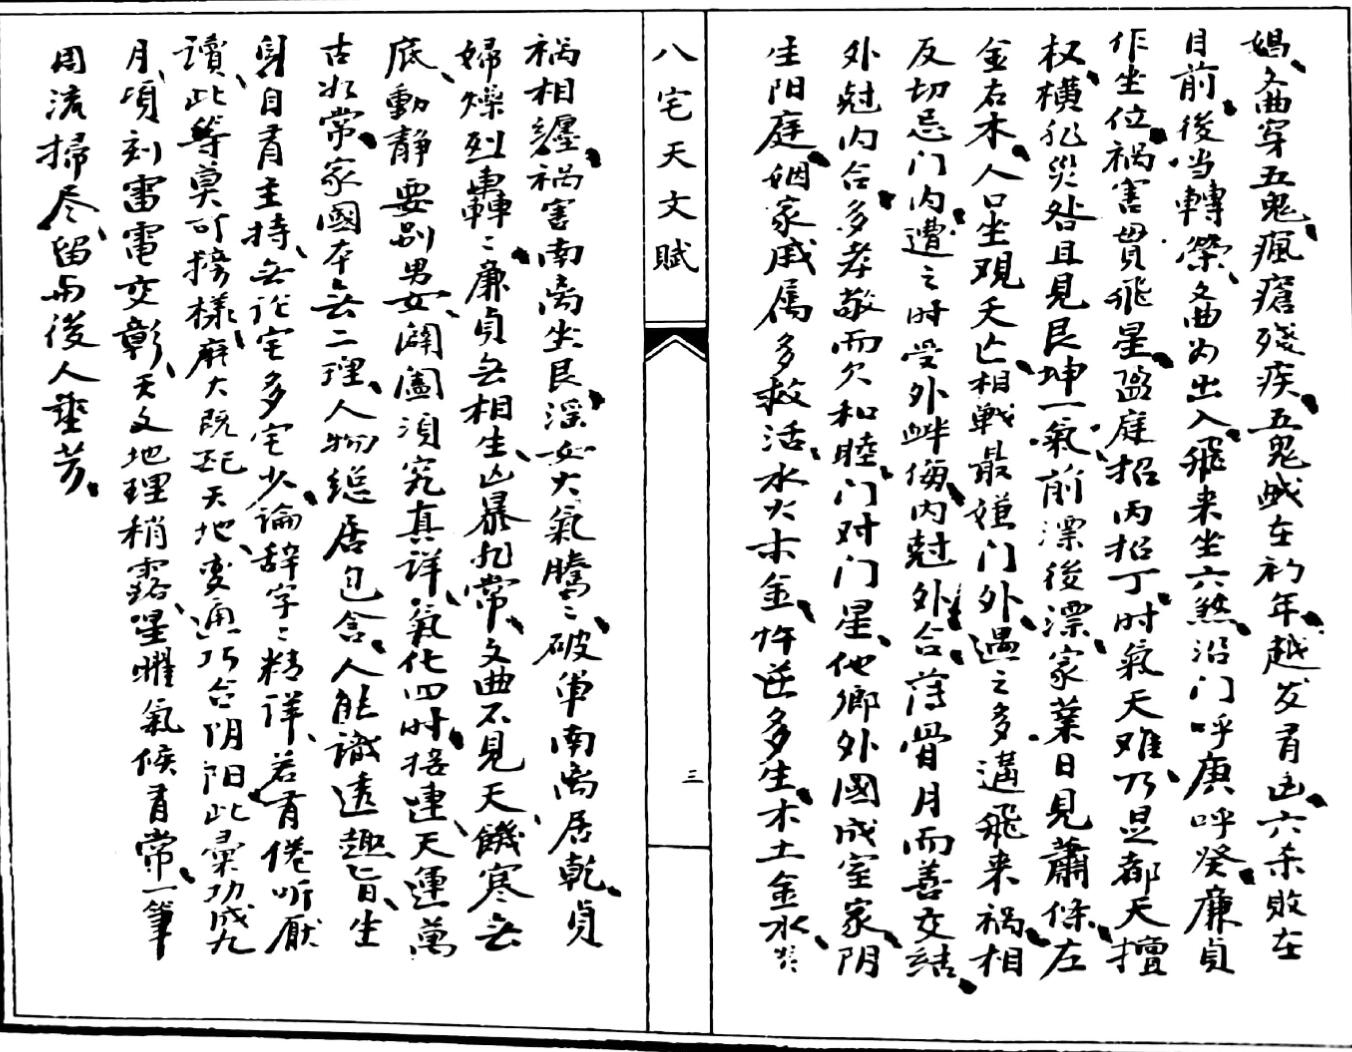 娼、文曲穿五鬼、瘋瘡殘疾、五鬼或在初年、越发有凶、六杀敗在
目前、後当轉榮、文曲为出入、飛来坐六煞、沿门呼庚呼癸、廉貞
作坐位、禍害貫飛星、盈庭招丙招丁、时氣天难、乃显都天擅
权、横犯災咎、且見艮坤一氣、前漂後漂、家葉日見蕭條、左
金右木、人口坐觀夭亡、相戰最嫌门外、遇之多遘飛来禍、相
反切忌门内、遭之时受外衅侮、内尅外合、薄骨月而善交結、
外尅内合、多孝敬而欠和睦、门对门星、他鄉外國成室家、阴
生阳庭、姻家戚属多救活、水火木金、忤逆多生、木土金水、
八宅天文賦
三
禍相纒、禍害南离坐艮、滛女大氣騰〻、破軍南离居乾、貞
婦燥烈轟〻、廉貞無相生、凶暴非常、文曲不見天、饑寒無
底、動静要别男女、闢闔須究真詳、氣化四时接連、天運萬
古如常、家國本無二理、人物総居包含、人能識透趣旨、生
身自有主持、無論宅多宅少、論辞字〻精詳、若有倦听厭
讀、此等莫可榜樣、麻大既配天地、变通巧合阴阳、此彙功成九
月、頃刻雷電交彰、天文地理稍露、星曜氣候有常、一筆
周流掃尽、留与後人垂芳、